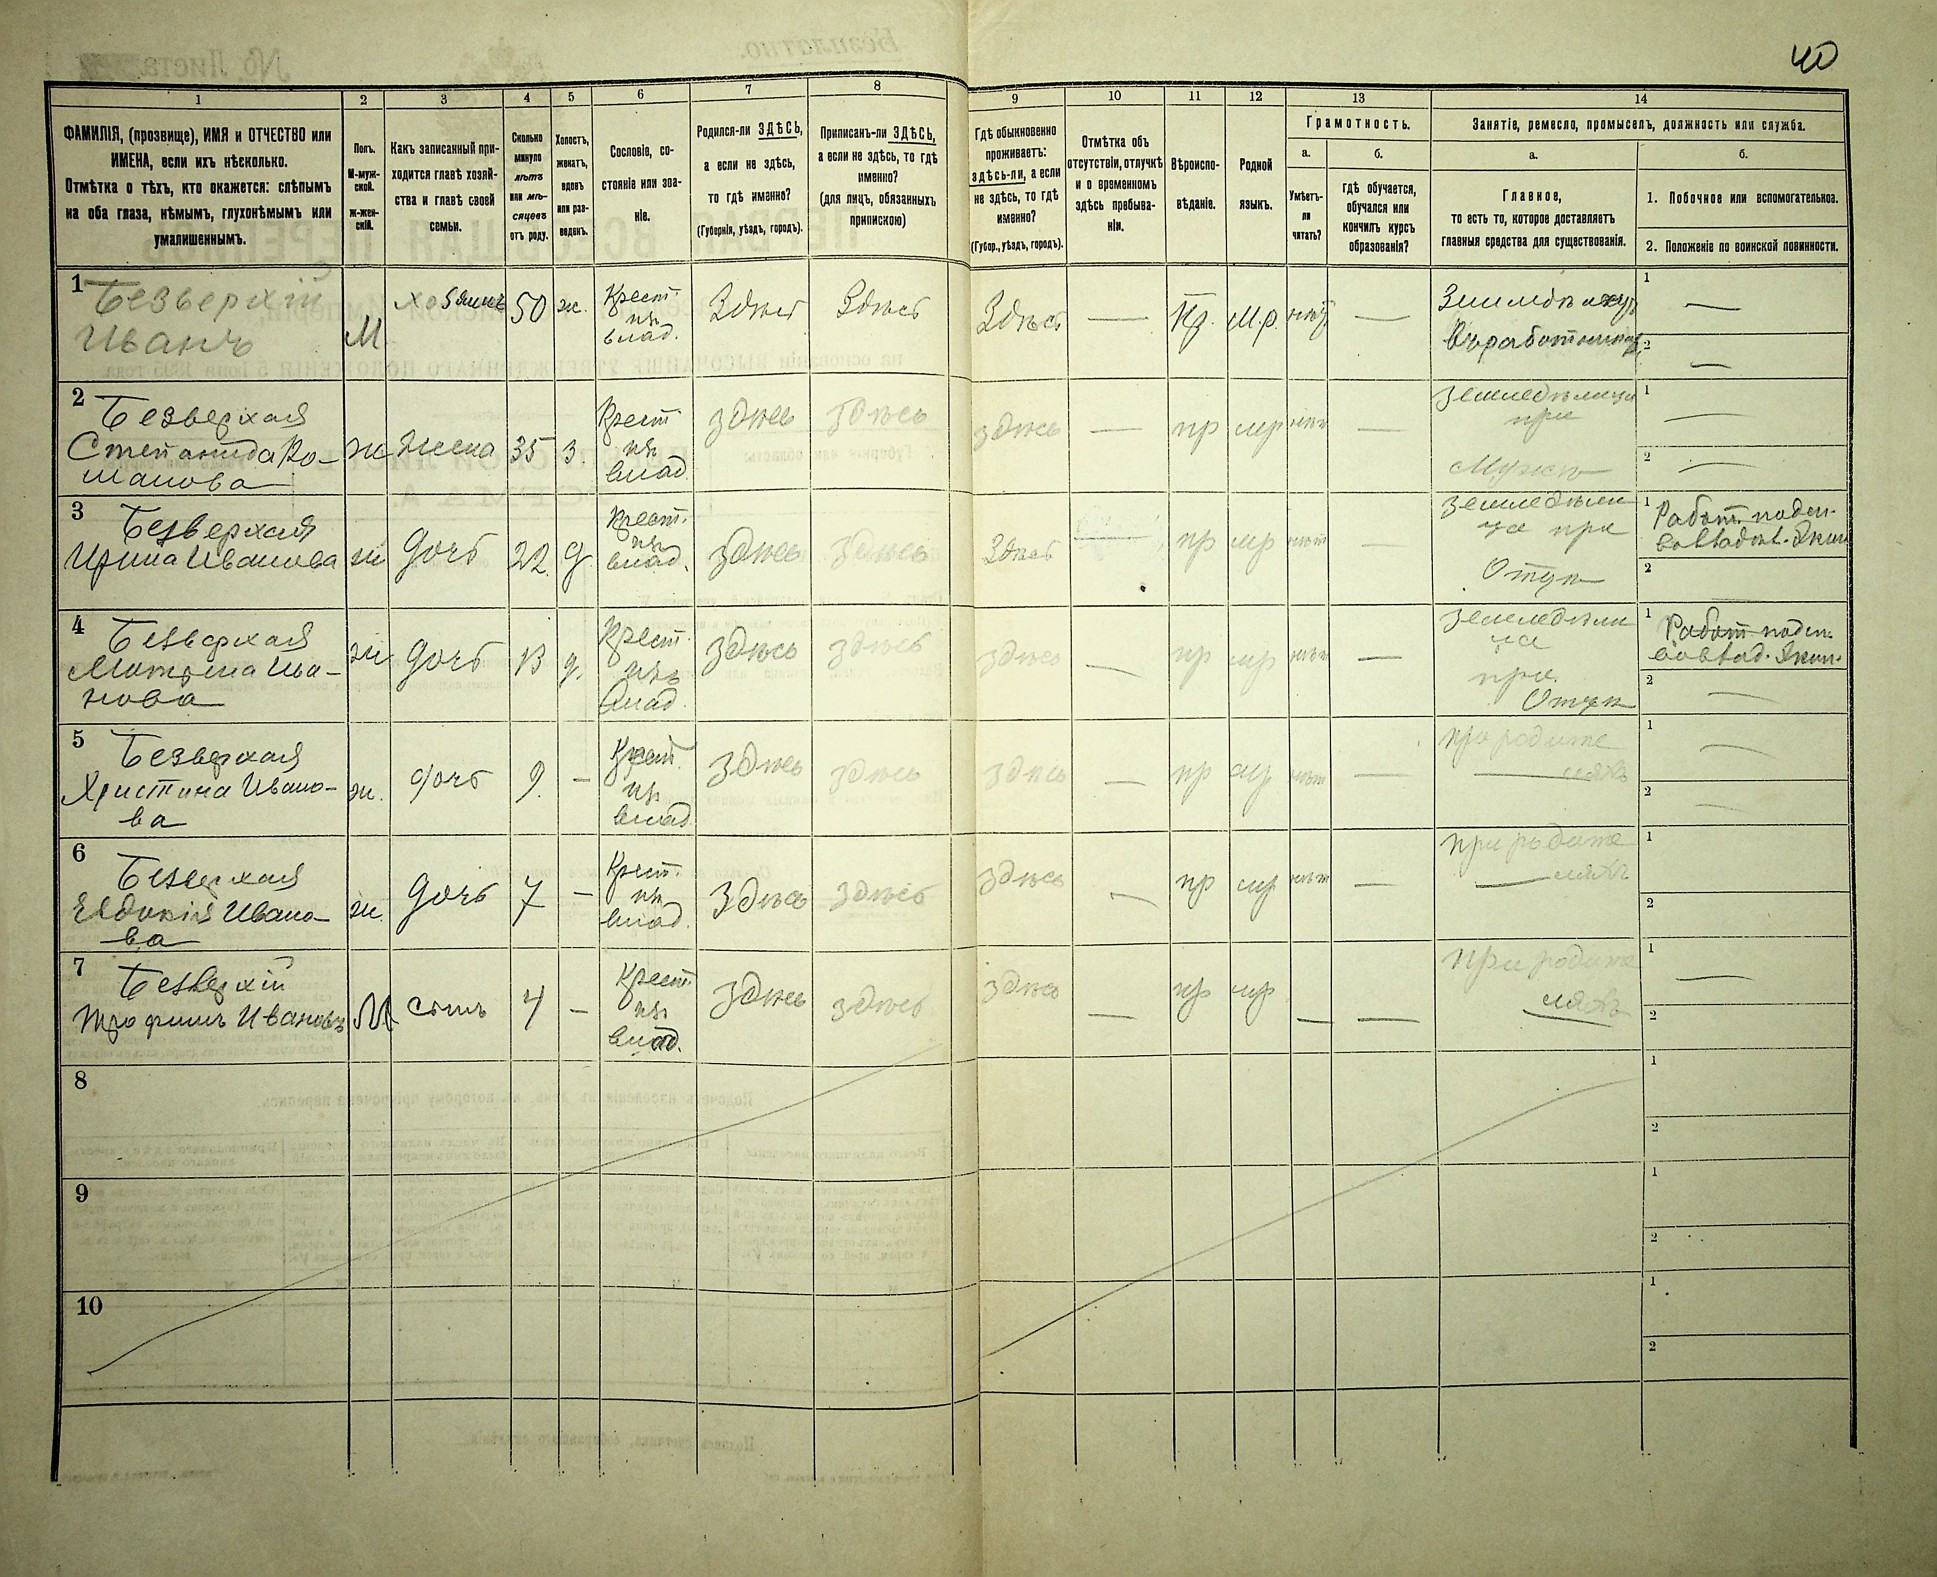 40
1
2
3
4
5
6
7
8
9
10
11
12
13
14
ФАМИЛІЯ, (прозвище), ИМЯ и ОТЧЕСТВО или
ИМЕНА, если ихъ нѣсколько.
Отмѣтка о тѣхъ, кто окажется: слѣпымъ
на оба глаза, нѣмымъ, глухонѣмымъ или
умалишеннымъ.
Полъ.
М-муж-
ской.
ж-жен-
скій.
Какъ записанный при-
ходится главѣ хозяй-
ства и главѣ своей
семьи.
Сколько
минуло
лѣтъ
или мѣ-
сяцевъ
отъ роду.
Холостъ,
женатъ,
вдовъ
или раз-
веденъ.
Сословіе, со-
стояніе или зва-
ніе.
Родился-ли ЗДѢСЬ,
а если не здѣсь,
то гдѣ именно?
(Губернія, уѣздъ, городъ).
Приписанъ-ли ЗДѢСЬ,
а если не здѣсь, то гдѣ
именно?
(для лицъ, обязанныхъ
припискою)
Гдѣ обыкновенно
проживаетъ:
здѣсь-ли, а если
не здѣсь, то гдѣ
именно?
(Губор., уѣздъ, городъ).
Отмѣтка объ
отсутствіи, отлучкѣ
и о временномъ
здѣсь пребыва-
ніи.
Вѣроиспо-
вѣданіе.
Родной
языкъ.
Грамотность.
а.
Умѣетъ-
ли
читать?
б.
гдѣ обучается,
обучался или
кончилъ курсъ
образованія?
Занятіе, ремесло, промыселъ, должность или служба.
а.
Главное,
то есть то, которое доставляетъ
главныя средства для существованія.
б.
1. Побочное или вспомогательноа.
2. Положеніе по воинской повинности.
1
Безверхій
Иванъ
М
хозяинъ
50
ж.
Крест.
изъ
влад.
Здѣсь
Здѣсь
Здѣсь
—
Пр.
М.р.
нѣт
—
1
—
2
—
2
Безверхая
Степанида Ро-
манова
ж
жена
35
з.
Крест
изъ
влад.
здѣсь
здѣсь
здѣсь
—
пр
мр
нѣт
—
земледѣлица
при
Мужѣ
1
—
2
—
3
Безверхая
Ирина Иванова
ж
дочь
22.
д.
Крест.
изъ
влад.
здѣсь
здѣсь
Здѣсь
пр
мр
нѣт
—
земледѣли
ца при
Отцѣ
1
Работ. поден.
2
4
Безверхая
Мотрона Ива-
нова
ж
дочь
13
д.
Крест.
изъ
влад.
здѣсь
здѣсь
здѣсь
—
пр
мр
нѣт
—
земледѣли
ца
при
Отцѣ
1
Работ поден.
2
—
5
Безверхая
Христина Ивано-
ва
ж.
дочь
9.
—
Крест.
изъ
влад
здѣсь
здѣсь
здѣсь
—
пр
мр
нѣт
—
при родите
ляхъ
1
—
2
—
6
Безверхая
Евдокія Ивано-
ва
ж.
дочь
7
—
Крест.
изъ
влад.
здѣсь
здѣсь
здѣсь
—
пр
мр
нѣт
—
при родите
ляхъ
1
2
7
Безверхій
Трофимъ Ивановъ
М
сынъ
4
—
Крест.
изъ
влад.
здѣсь
здѣсь
здѣсь
—
пр
мр
—
—
при родите
ляхъ
1
—
2
8
1
2
9
1
2
10
1
2